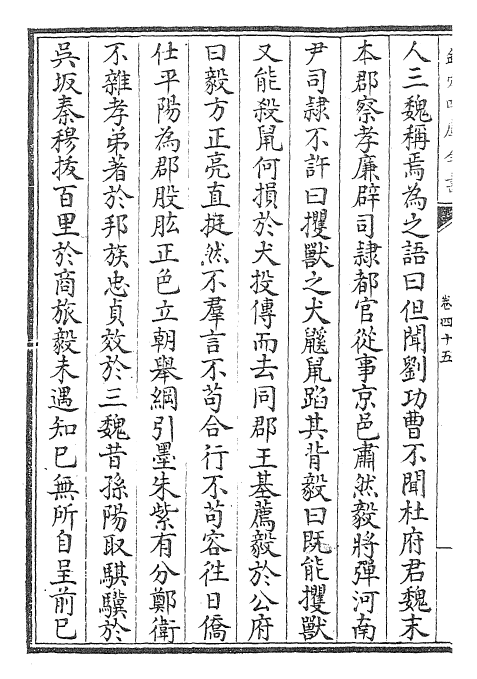 人三魏稱焉為之語曰但聞劉功曹不聞杜府君魏末
本郡察孝廉辟司隷都官從事京邑肅然毅將彈河南
尹司隷不許曰攫獸之犬鼷鼠蹈其背毅曰既能攫獸
又能殺鼠何損於犬投傳而去同郡王基薦毅於公府
曰毅方正亮直挺然不羣言不苟合行不苟容徃日僑
仕平陽為郡股肱正色立朝舉綱引墨朱紫有分鄭衛
不雜孝弟著於邦族忠貞效於三魏昔孫陽取騏驥於
吳坂秦穆拔百里於商旅毅未遇知己無所自呈前已
卷四十五